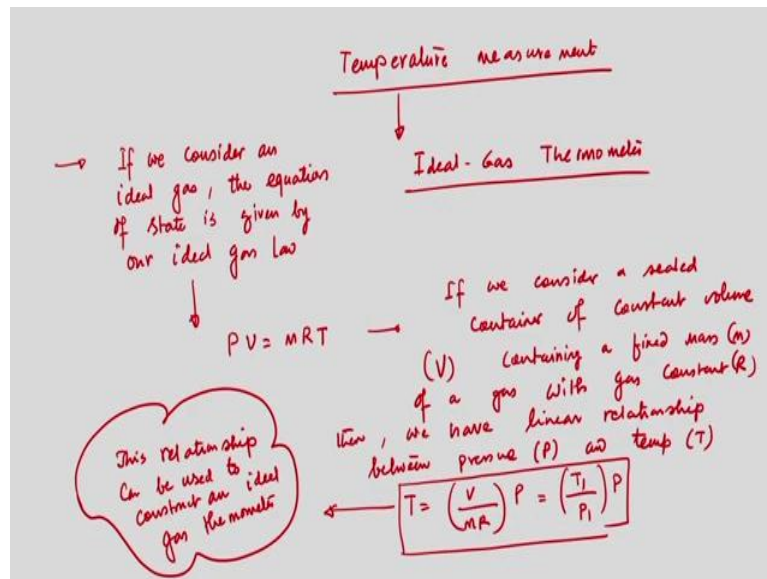 Temperature measurement
Ideal-Gas Thermometer
→ If we consider an
ideal gas, the equation
of state is given by
our ideal gas law
PV = mRT →
If we consider a sealed
container of constant volume
(V) containing a fixed mass (m)
of a gas with gas constant (R)
then, we have linear relationship
between pressure (P) and temp (T)
T = (V/mR) P = (T1/P1) P
This relationship
can be used to
construct an ideal
gas thermometer